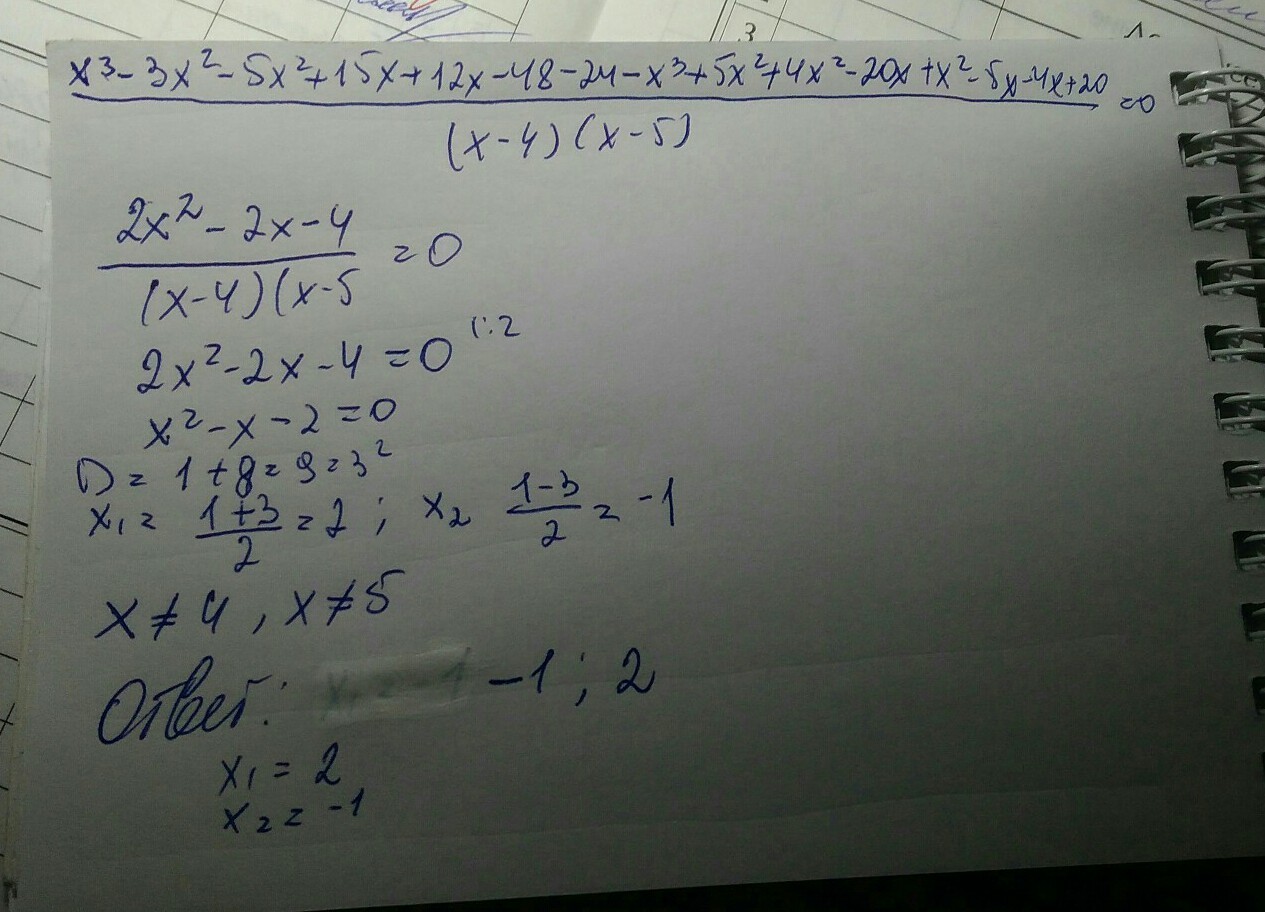 x³-3x²-5x²+15x+12x-48-24-x³+5x²+4x²-20x+x²-5x-4x+20
=0
(x-4)(x-5)
2x²-2x-4
=0
(x-4)(x-5
2x²-2x-4=0 |:2
x²-x-2=0
D=1+8=9=3²
x₁= (1+3)/2 =2; x₂ (1-3)/2 = -1
x≠4, x≠5
Ответ: -1; 2
x₁=2
x₂=-1